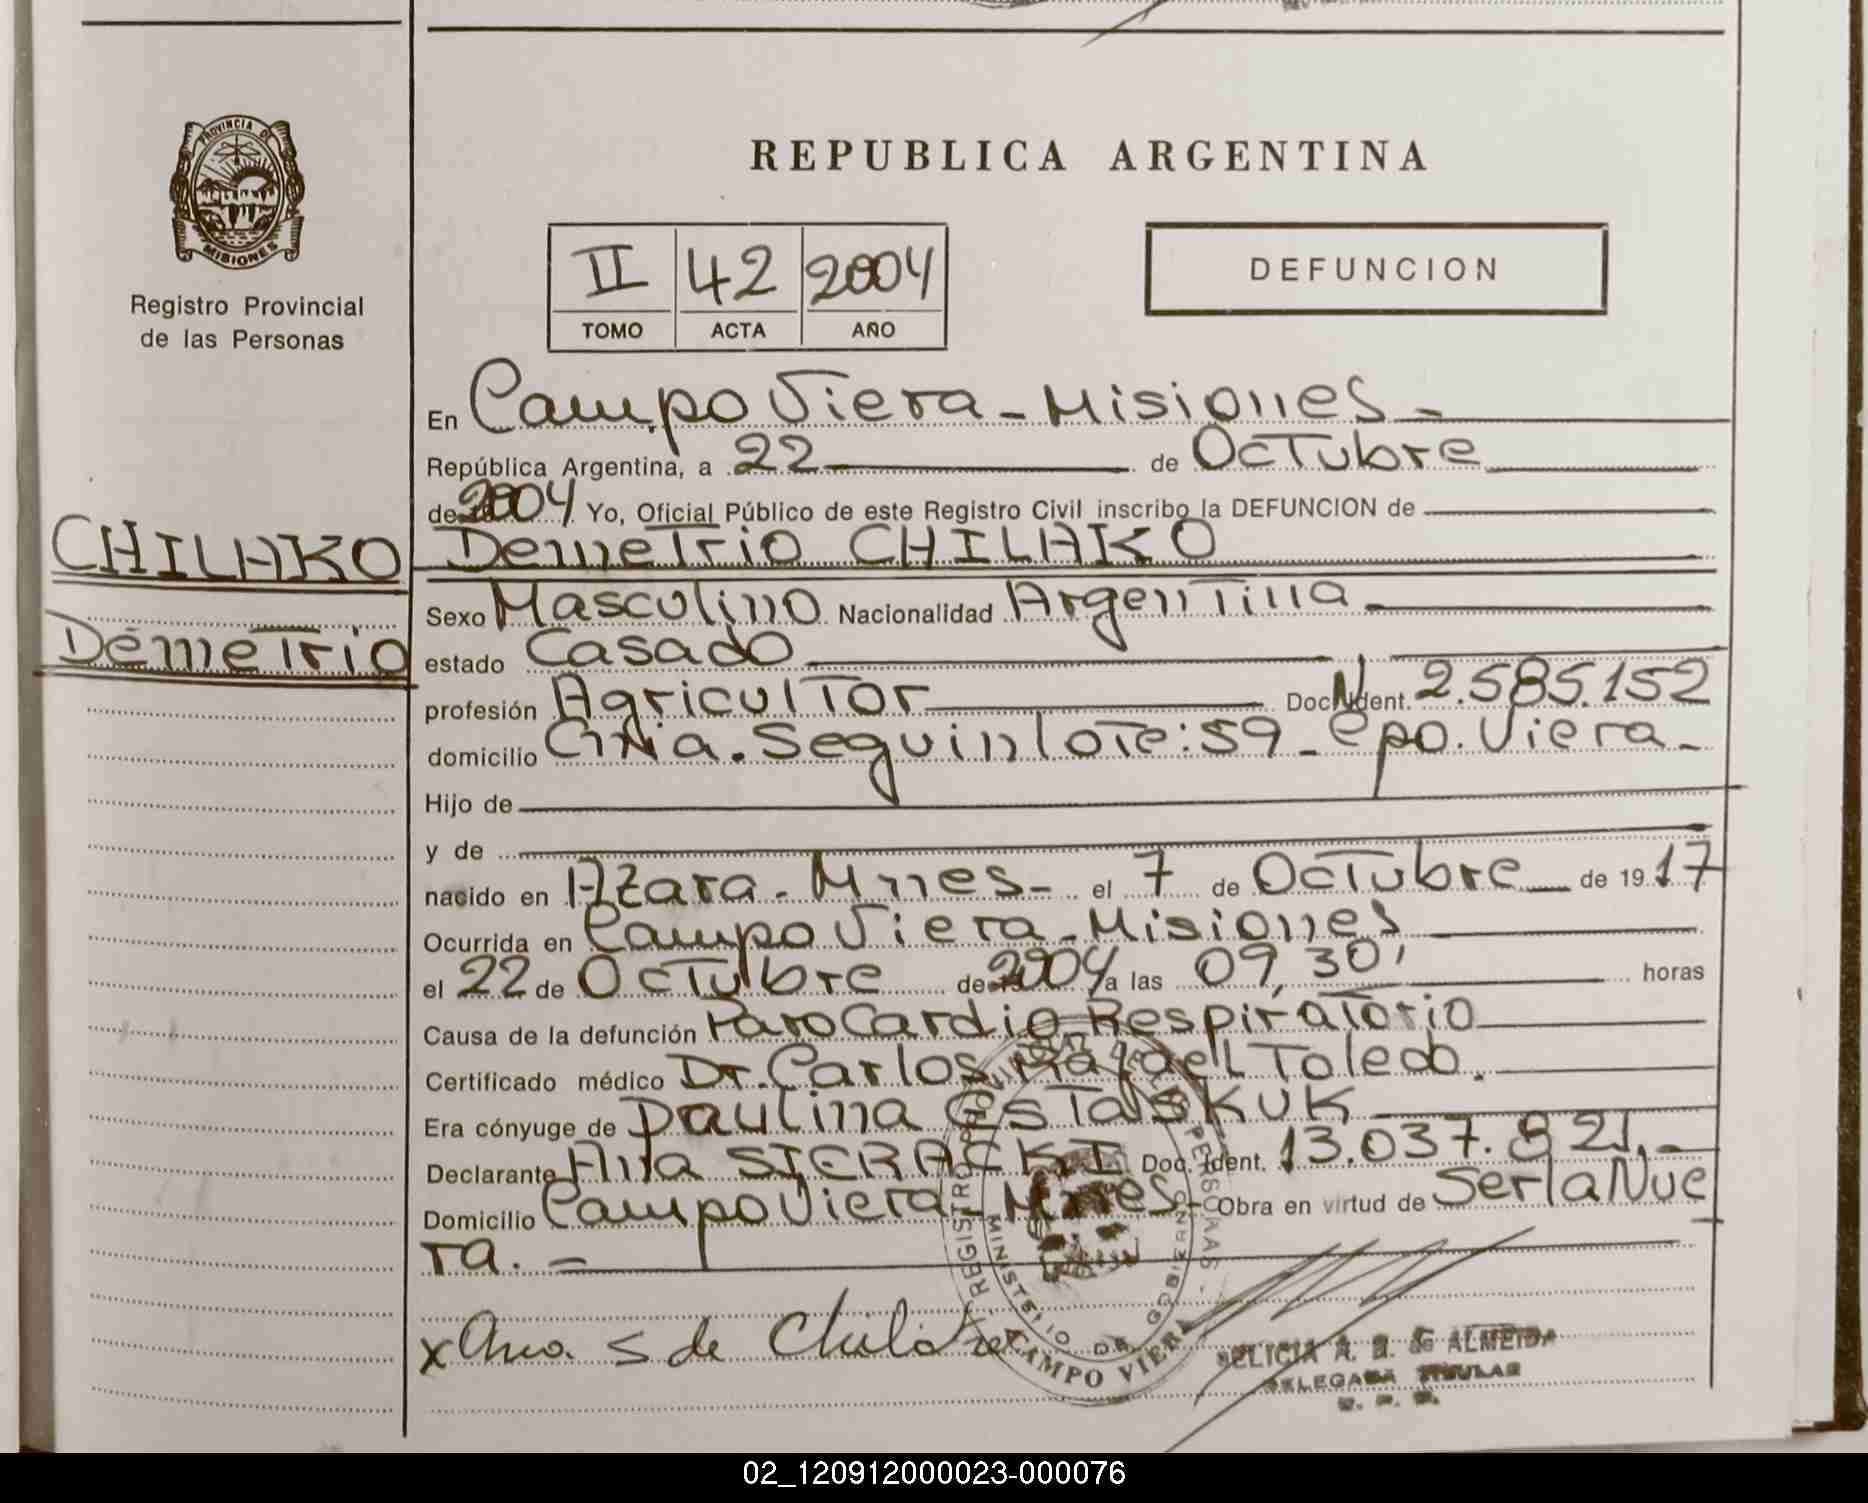 PROVINCIA DE
MISIONES
Registro Provincial
de las Personas
REPUBLICA ARGENTINA
II 42 2004
TOMO ACTA AÑO
DEFUNCION
En Campo Viera - Misiones -
República Argentina, a 22 de Octubre
de 2004 Yo, Oficial Público de este Registro Civil inscribo la DEFUNCION de
CHILAKO
Demetrio CHILAKO
Sexo Masculino Nacionalidad Argentina
Demetrio
estado Casado
profesión Agricultor Doc. Ident. N 2.585.152
domicilio Cnia. Seguin lote: 59 - Cpo. Viera -
Hijo de
y de
nacido en Azara - Mnes - el 7 de Octubre de 19 17
Ocurrida en Campo Viera - Misiones
el 22 de Octubre de 2004 a las 09,30' horas
Causa de la defunción Paro Cardio Respiratorio
Certificado médico Dr. Carlos Rafael Toledo.
Era cónyuge de Paulina Estaskuk
Declarante Ana SIERACKI Doc. Ident. 13.037.821.-
Domicilio Campo Viera - Mnes - Obra en virtud de Ser la Nue
ra. =
x Ana S de Chilako
REGISTRO PROVINCIAL DE LAS PERSONAS -
MINISTERIO DE GOBIERNO
CAMPO VIERA
A. B. de ALMEIDA
DELEGADA TITULAR
R. P. P.
02_120912000023-000076